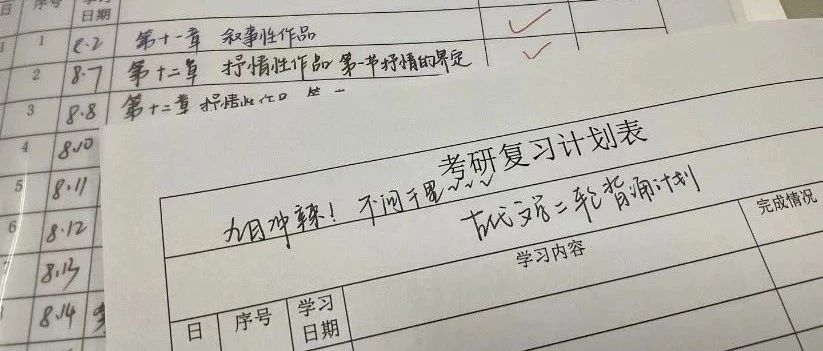 日 序号 学习日期
1 8.2 第十一章 叙事性作品
2 8.7 第十二章 抒情性作品 第一节抒情的界定
3 8.8 第十二章 抒情性作品 第
4 8.10
5 8.11
6 8.12
8.13
8.14
考研复习计划表
九月冲辣! 不问千里~~~
古代文学二轮背诵计划
日 序号 学习日期 学习内容 完成情况